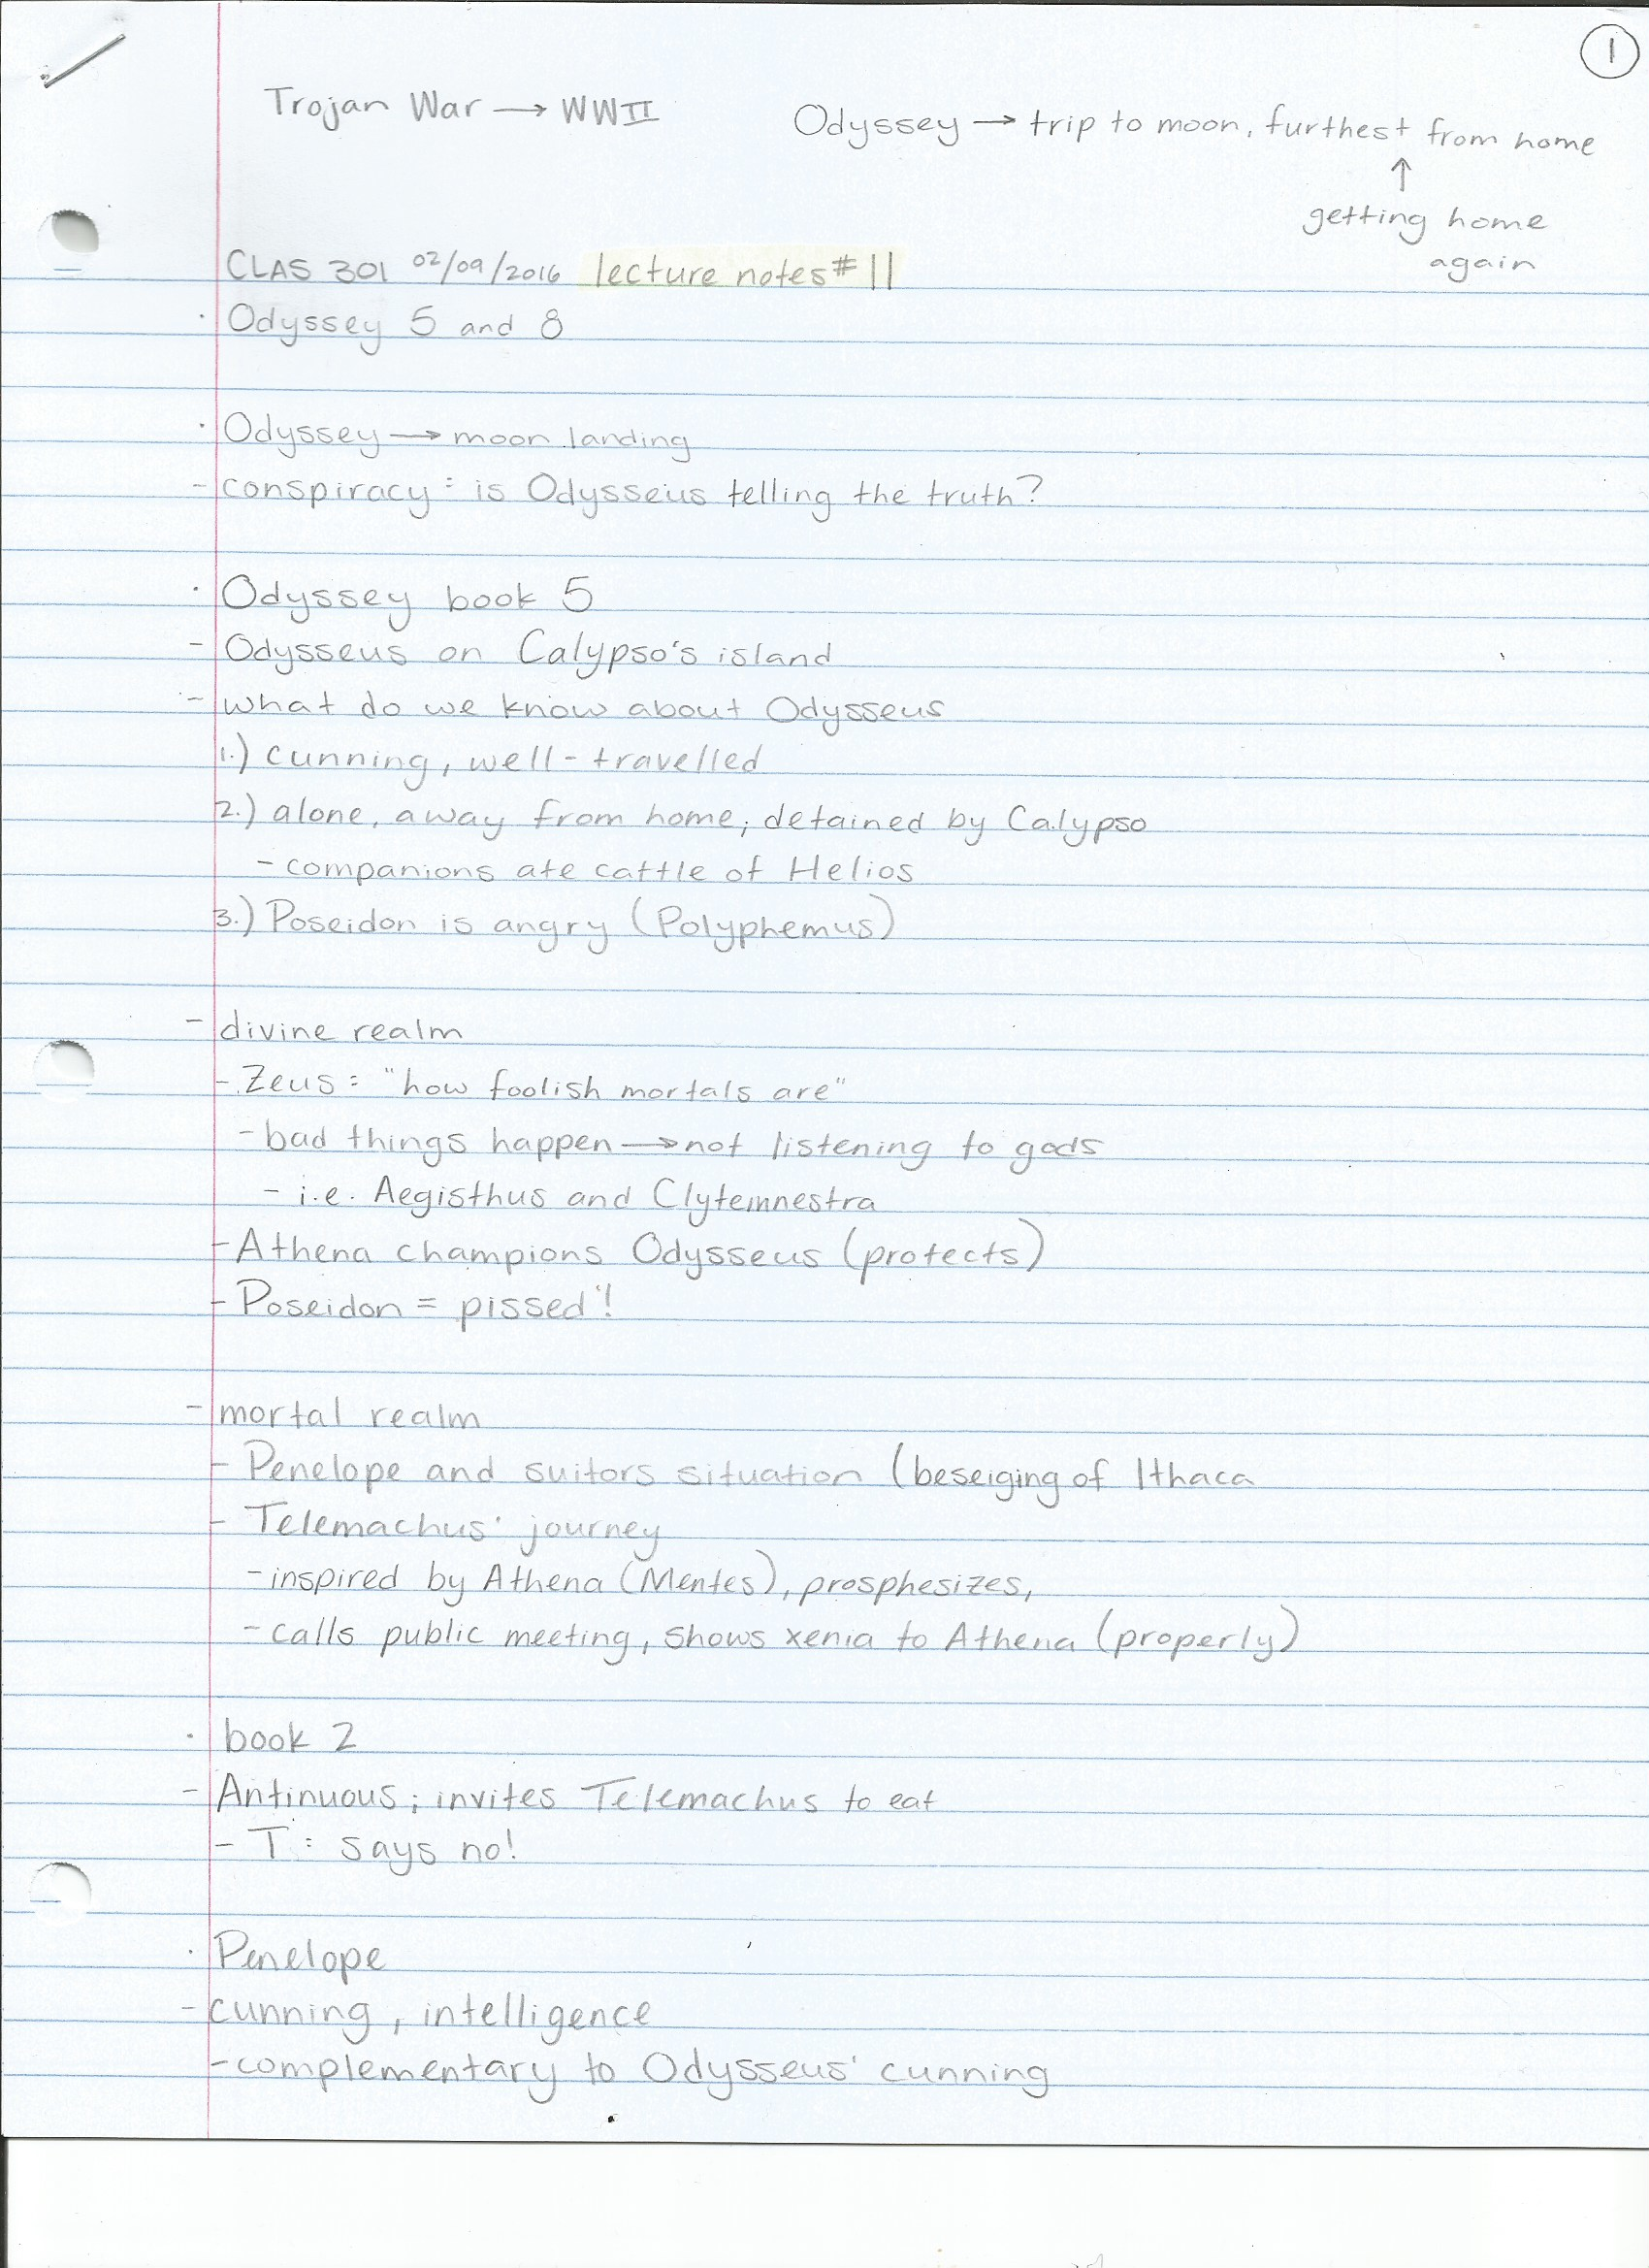 1
Trojan War → WWII
Odyssey → trip to moon, furthest from home
↑
getting home
again
CLAS 301 02/09/2016 lecture notes #11
· Odyssey 5 and 8
· Odyssey → moon landing
- conspiracy: is Odysseus telling the truth?
· Odyssey book 5
- Odysseus on Calypso's island
- what do we know about Odysseus
1.) cunning, well-travelled
2.) alone, away from home; detained by Calypso
- companions ate cattle of Helios
3.) Poseidon is angry (Polyphemus)
- divine realm
- Zeus: "how foolish mortals are"
- bad things happen → not listening to gods
- i.e. Aegisthus and Clytemnestra
- Athena champions Odysseus (protects)
- Poseidon = pissed!
- mortal realm
- Penelope and suitors situation (beseiging of Ithaca
- Telemachus' journey
- inspired by Athena (Mentes), prosphesizes,
- calls public meeting, shows xenia to Athena (properly)
· book 2
- Antinuous; invites Telemachus to eat
- T: says no!
· Penelope
- cunning, intelligence
- complementary to Odysseus' cunning